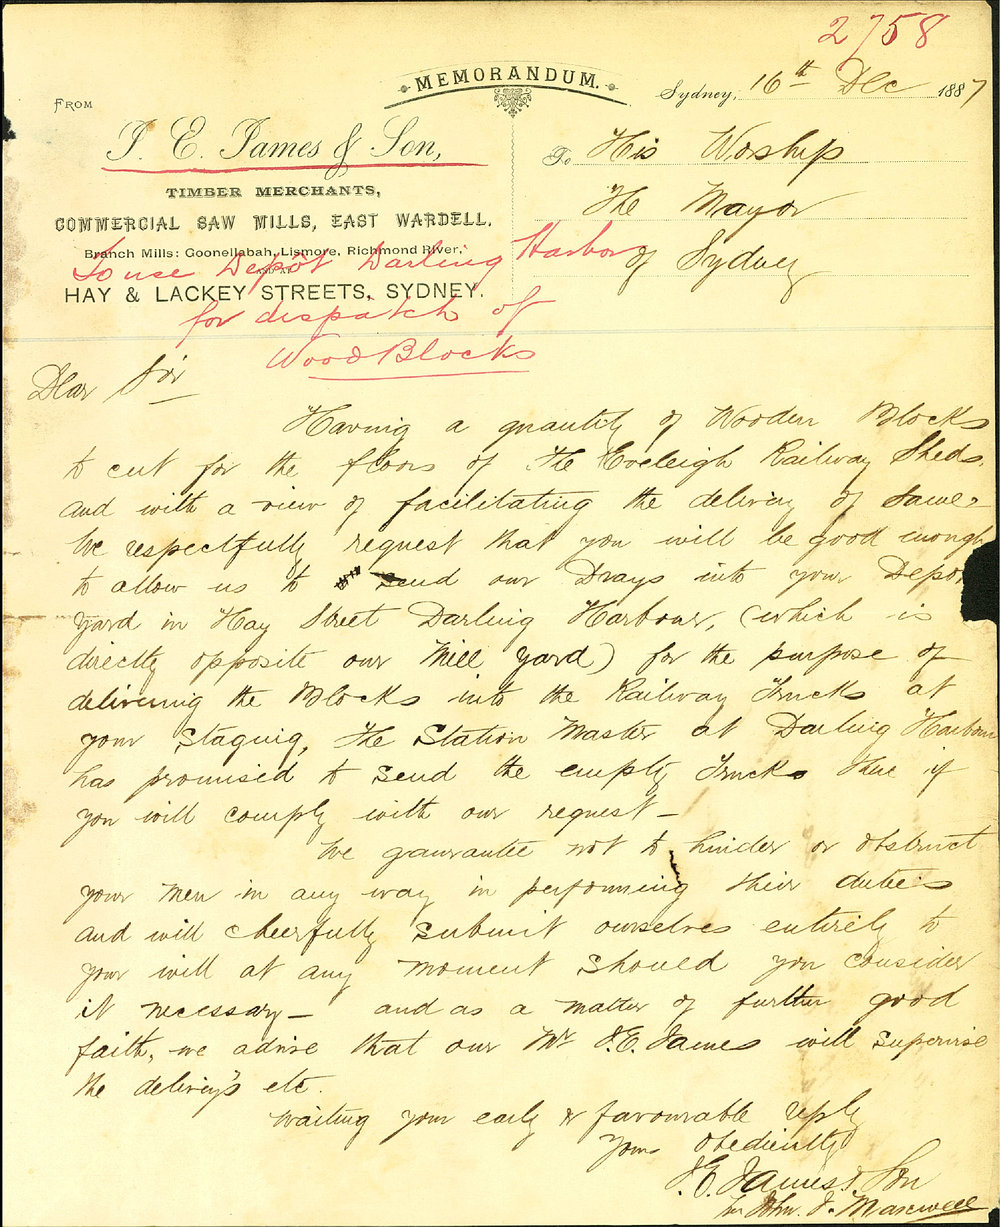 2758
MEMORANDUM.
FROM
Sydney, 16th Dec 1887
J. E. James & Son,
To His Worship
TIMBER MERCHANTS,
The Mayor
COMMERCIAL SAW MILLS, EAST WARDELL.
of Sydney
Branch Mills: Goonellabah, Lismore, Richmond River,
AND AT
HAY & LACKEY STREETS, SYDNEY.
To use Depôt Darling Harbor
for dispatch of
Wood Blocks
Dear Sir
Having a quantity of Wooden Blocks
to cut for the floors of the Eveleigh Railway Sheds,
and with a view of facilitating the delivery of same,
We respectfully request that you will be good enough
to allow us to send our Drays into your Depot
yard in Hay Street Darling Harbour, (which is
directly opposite our Mill yard) for the purpose of
delivering the Blocks into the Railway Trucks at
your Staging, The Station Master at Darling Harbour
has promised to send the empty Trucks there if
you will comply with our request—
We gaurantee not to hinder or obstruct
your men in any way in performing their duties
and will cheerfully submit ourselves entirely to
your will at any moment should you consider
it necessary— and as a matter of further good
faith, we advise that our Mr J. E. James will supervise
the delivery's etc.
Waiting your early & favourable reply
Yours obediently
J. E. James & Son
per John. J. Maxwell